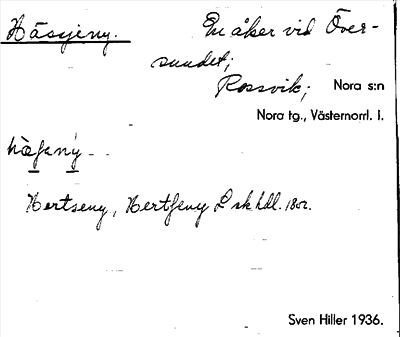 Häsjeny. En åker vid Över-
sundet;
Rossvik; Nora s:n
Nora tg., Västernorrl. l.
Hertseny, Hertjeny L sk hdl. 1802.
Sven Hiller 1936.